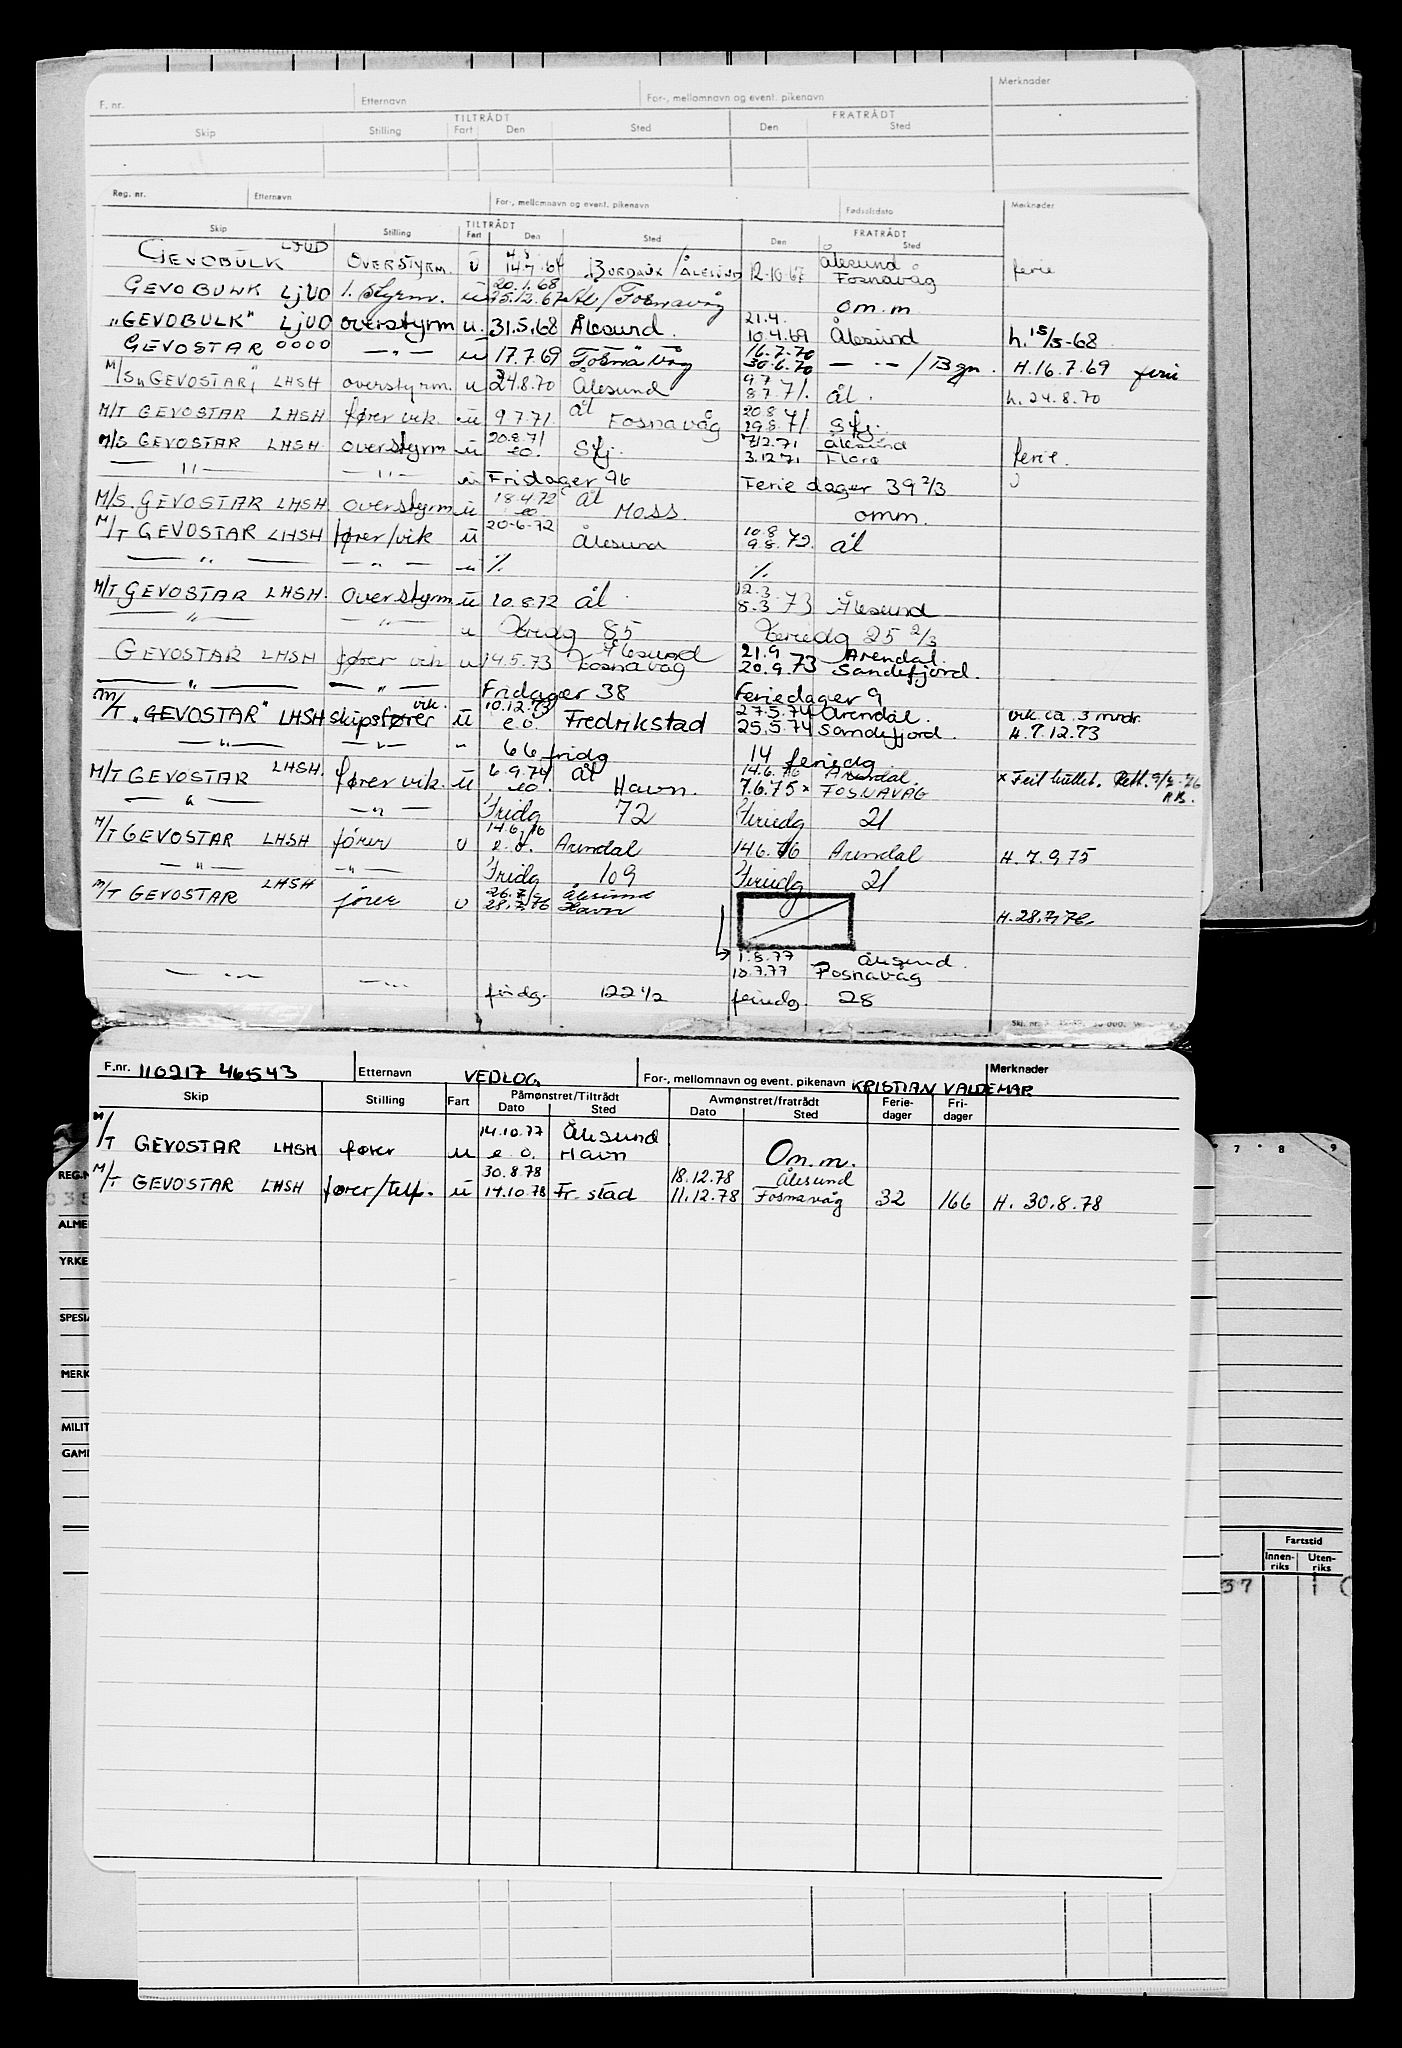 F. nr. Etternavn For-, mellomnavn og event. pikenavn Merknader
TILTRÅDT FRATRÅDT
Skip Stilling Fart Den Sted Den Sted
Reg. nr. Etternavn For-, mellomnavn og event. pikenavn Fødselsdato Merknader
TILTRÅDT FRATRÅDT
Skip Stilling Fart Den Sted Den Sted
GEVOBULK LJUO OVERSTYRM. u BORDAUX / ÅLESUND 12-10-67 Ålesund Fosnavåg ferie
20.1.68
GEVOBULK LJUO 1. Styrm. u 25.12.67 Ål / Fosnavåg om.m
21.4.
"GEVOBULK" LJUO overstyrm u. 31.5.68 Ålesund. 10.4.69 Ålesund h. 15/5-68
16.7.70
GEVOSTAR OOOO — " — u 17.7.69 Fosnavåg 30.6.70 — " — / Bgn. H. 16.7.69 ferie
9.7
M/S "GEVOSTAR" LHSH overstyrm. u 24.8.70 Ålesund 8.7.71. ål. h. 24.8.70
20.8
M/T GEVOSTAR LHSH fører vik. u 9.7.71 ål Fosnavåg 19.8.71 Sfj.
20.8.71 7.12.71 Ålesund
M/S GEVOSTAR LHSH. overstyrm u e.o. Sfj. 3.12.71 Florø ferie.
— " — — " — u Fridager 96 Ferie dager 39 2/3
18.4.72 ål
M/S. GEVOSTAR LHSH overstyrm u e.o. Moss. omm.
M/T GEVOSTAR LHSH fører/vik u 20-6-72 Ålesund 10.8 9.8.72. ål
— " — — " — u % %
12.3
M/T GEVOSTAR LHSH. overstyrm u 10.8.72 ål. 8.3.73 Ålesund
— " — — " — u Fridg 85 Feriedg 25 2/3
Ålesund 21.9 Arendal
GEVOSTAR LHSH fører vik u 14.5.73 Fosnavåg 20.9.73 Sandefjord.
— " — — " — Fridager 38 Feriedager 9
vik. 10.12.73 27.5.74 Arendal. vik. ca. 3 mndr.
M/T "GEVOSTAR" LHSH skipsfører u e.o. Fredrikstad 25.5.74 Sandefjord. H. 7.12.73
— " — — " — " 66 fridg 14 feriedg
6.9.74 ål 14.6.76 Arendal
M/T GEVOSTAR LHSH. fører vik. u e.o. Havn. 7.6.75 x FOSNAVÅG x Feil hullet. Rett.
— " — — " — Fridg 72 Feriedg 21
14.6.76
M/T GEVOSTAR LHSH fører u e.o. Arendal 14.6.76 Arendal H. 7.9.75
— " — — " — Fridg 109 Feriedg 21
26.7.76 Ålesund
M/T GEVOSTAR LHSH fører u 28.7.76 Havn H. 28.7.76
1.8.77 Ålesund.
10.7.77 Fosnavåg
— " — — " — fridg. 122 1/2 feriedg. 28
F.nr. 110217 46543 Etternavn VEDLOG For-, mellomnavn og event. pikenavn KRISTIAN VALDEMAR Merknader
Skip Stilling Fart Påmønstret/Tiltrådt Avmønstret/fratrådt Ferie-dager Fri-dager
Dato Sted Dato Sted
14.10.77 Ålesund
M/T GEVOSTAR LHSH fører u e.o. Havn Om.m.
30.8.78 18.12.78 Ålesund
M/T GEVOSTAR LHSH fører/telf. u 14.10.78 Fr. stad 11.12.78 Fosnavåg 32 166 H. 30.8.78
REG.N
ALME
YRKE
SPESIA
MERK
MILIT
GAM
7 8 9
Fartstid
Innen-riks Uten-riks
37 1